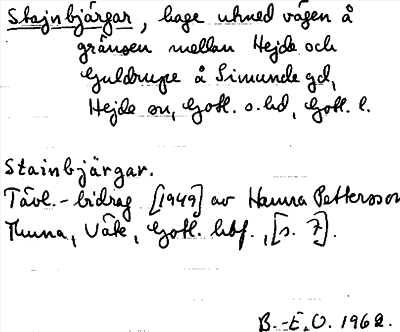 Stajnbjärgar, hage utmed vägen å
gränsen mellan Hejde och
Guldrupe å Simunde gd,
Hejde sn, Gotl. s. hd, Gotl. l.
Stainbjärgar.
Tävl.-bidrag [1949] av Hanna Pettersson
Väte, Gotl. [s. 7].
B.-E.O. 1962.